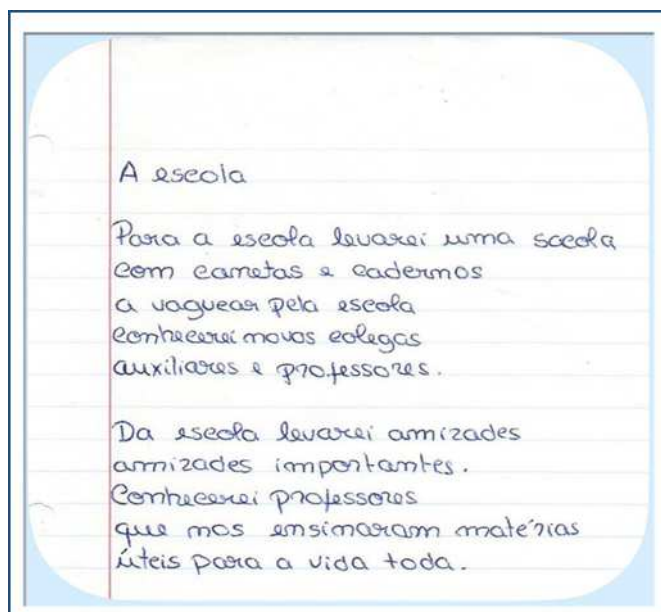 A escola
Para a escola levarei uma sacola
com canetas e cadernos
a vaguear pela escola
conhecerei novos colegas
auxiliares e professores.
Da escola levarei amizades
amizades importantes.
Conhecerei professores
que nos ensinaram matérias
úteis para a vida toda.